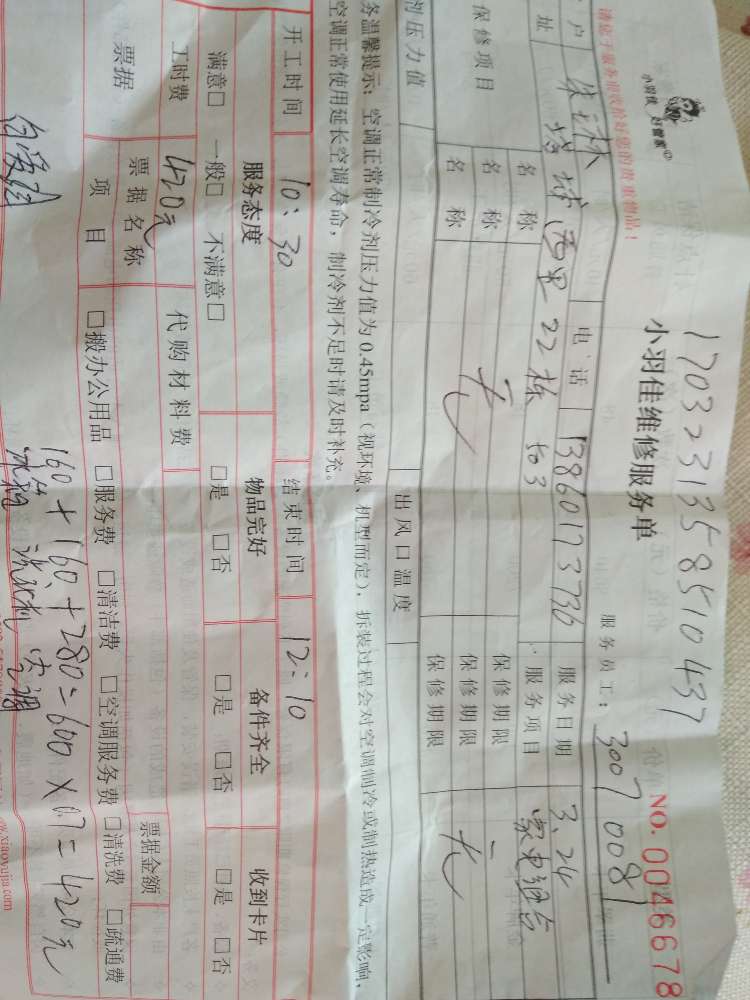 17032313585 10437
小羽佳 好管家
小羽佳维修服务单
NO. 0046678
请您于服务前收拾好您的贵重物品！
服务员工： 3007 0081
户
电 话 13860173736 服务日期 3.24
址 西里 22栋 503 服务项目 家电组合
保修项目 名 称 无 保修期限 无
名 称 保修期限
名 称 保修期限
剂压力值 出风口温度
务温馨提示：空调正常制冷剂压力值为0.45mpa（视环境、机型而定），拆装过程会对空调制冷或制热造成一定影响，
空调正常使用延长空调寿命，制冷剂不足时请及时补充。
开工时间 10:30 结束时间 12:10
服务态度 物品完好 备件齐全 收到卡片
满意□ 一般□ 不满意□ □是 □否 □是 □否 □是 □否
工时费 420元 代购材料费
票据 票据名称 票据金额
项 目 □搬办公用品 □服务费 □清洁费 □空调服务费 □清洗费 □疏通费
160+160+280=600×0.7=420元
冰箱 洗衣机 空调
.xiaoyujia.com